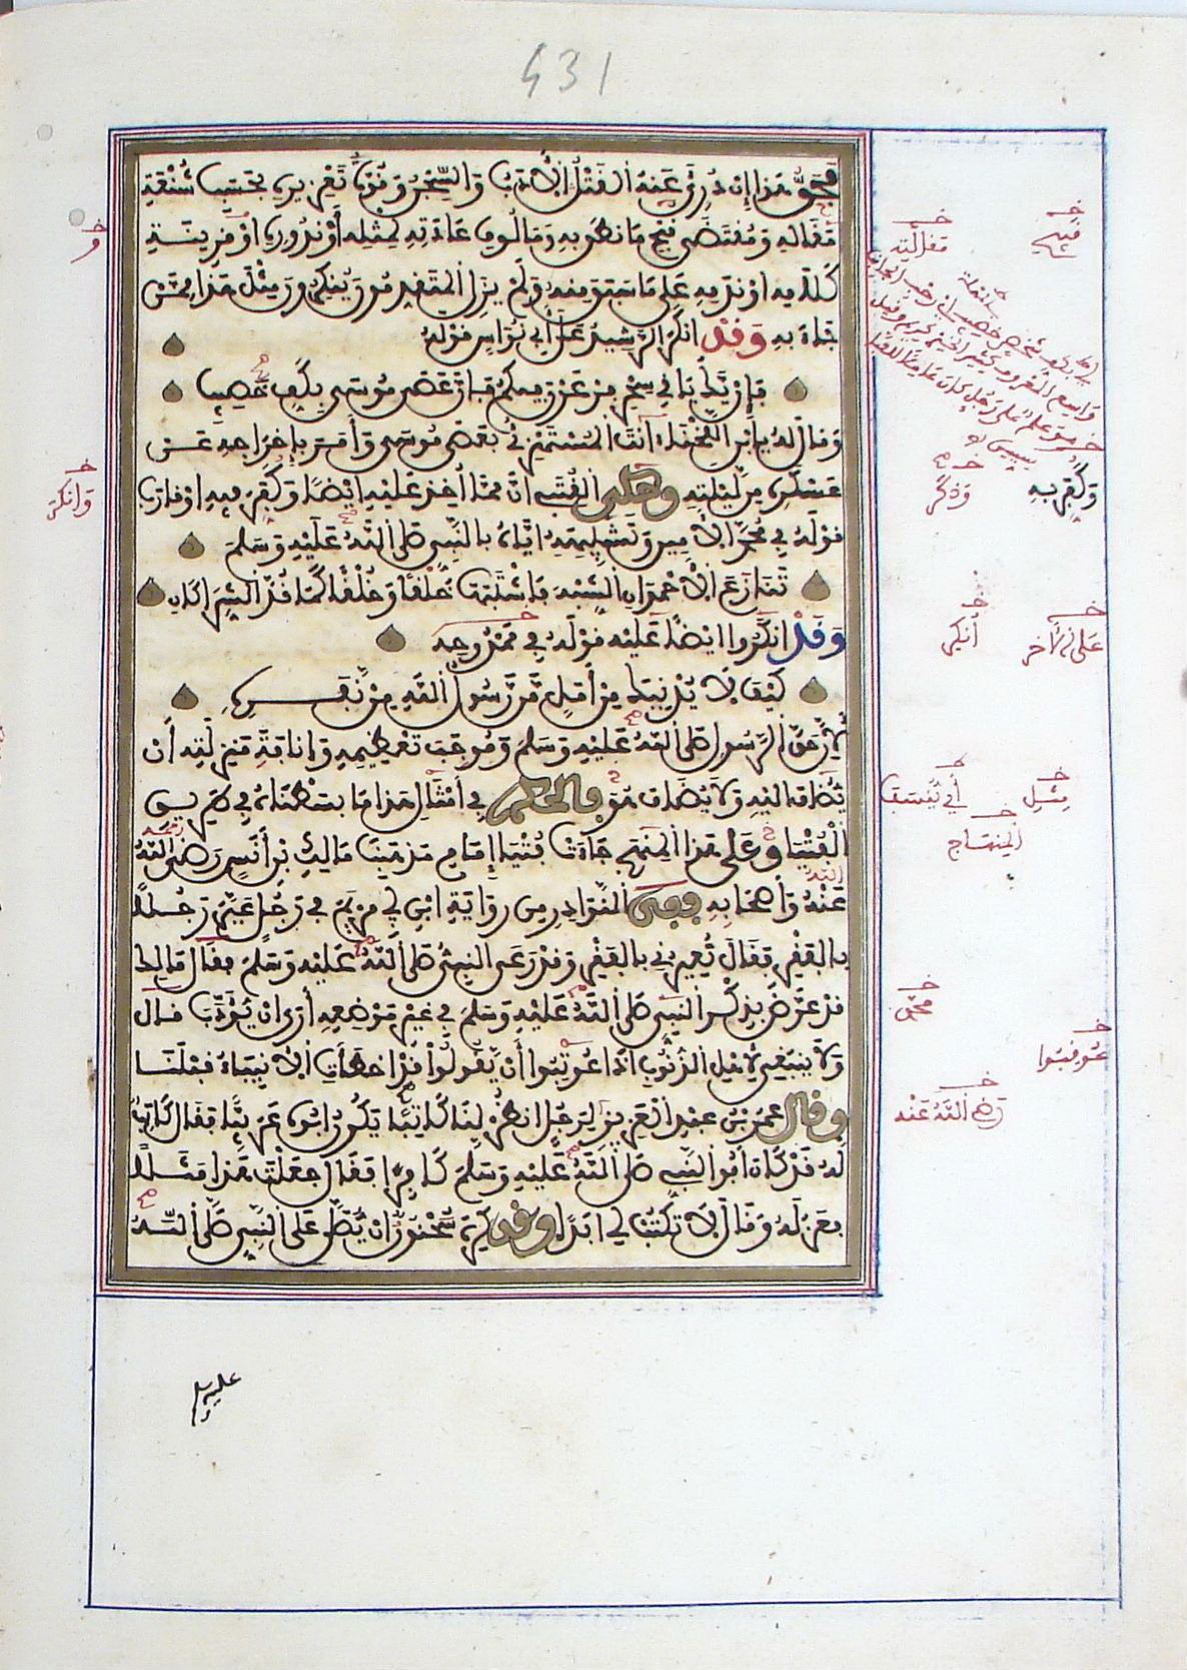 431
فحق هذا إن درئ عنه القتل الأدب والسجن وقوة تعزيره بحسب شنعة
مقاله ومقتضى قبح ما نطق به ومألوف عادته لمثله أو ندوره أو قرينة
كلامه أو ندمه على ما سبق منه ولم يزل المتقدمون ينكرون مثل هذا ممن
جاء به وقد أنكر الرشيد على أبي نواس قوله
فإن يك باقي سحر فرعون فيكم فإن عصى موسى بكف خصيب
وقال له يا ابن اللخناء أنت المستهزئ بعصى موسى وأمر بإخراجه عن
عسكره من ليلته وحكى القتبي أن مما أخذ عليه أيضا وكفر فيه أو قارب
قوله في محمد الأمين وتشبيهه إياه بالنبي صلى الله عليه وسلم
تنازع الأحمدان الشبه فاشتبها خلقا وخلقا كما قد الشراكان
وقد أنكروا أيضا عليه قوله في ممدوحه
كيف لا يدنيك من أمل من رسول الله من نفره
لأن حق الرسول صلى الله عليه وسلم وموجب تعظيمه وإنافة منزلته أن
يضاف إليه ولا يضاف هو فالحكم في أمثال هذا ما بسطناه في طريق
الفتيا وعلى هذا المنهج جاءت فتيا إمام مذهبنا مالك بن أنس رضي الله
عنه وأصحابه ففي النوادر من رواية ابن أبي مريم في رجل عير رجلا
بالفقر فقال تعيرني بالفقر وقد رعى النبي صلى الله عليه وسلم فقال مالك
قد عرض بذكر النبي صلى الله عليه وسلم في غير موضعه أرى أن يؤدب قال
ولا ينبغي لأهل الذنوب إذا عوتبوا أن يقولوا قد أخطأت الأنبياء قبلنا
وقال عمر بن عبد العزيز لرجل انظر لنا كاتبا يكون أبوه عربيا فقال كاتب
له قد كان أبو النبي صلى الله عليه وسلم كافرا فقال جعلت هذا مثلا
فعزله وقال لا تكتب لي أبدا وقد كره سحنون أن يصلى على النبي صلى الله
عليه وسلم
و
وانكر
مقالته
وكفر به
وذكر
أنكر
على الآخر
مثل
المنهاج
عوقبوا
رضي الله عنه